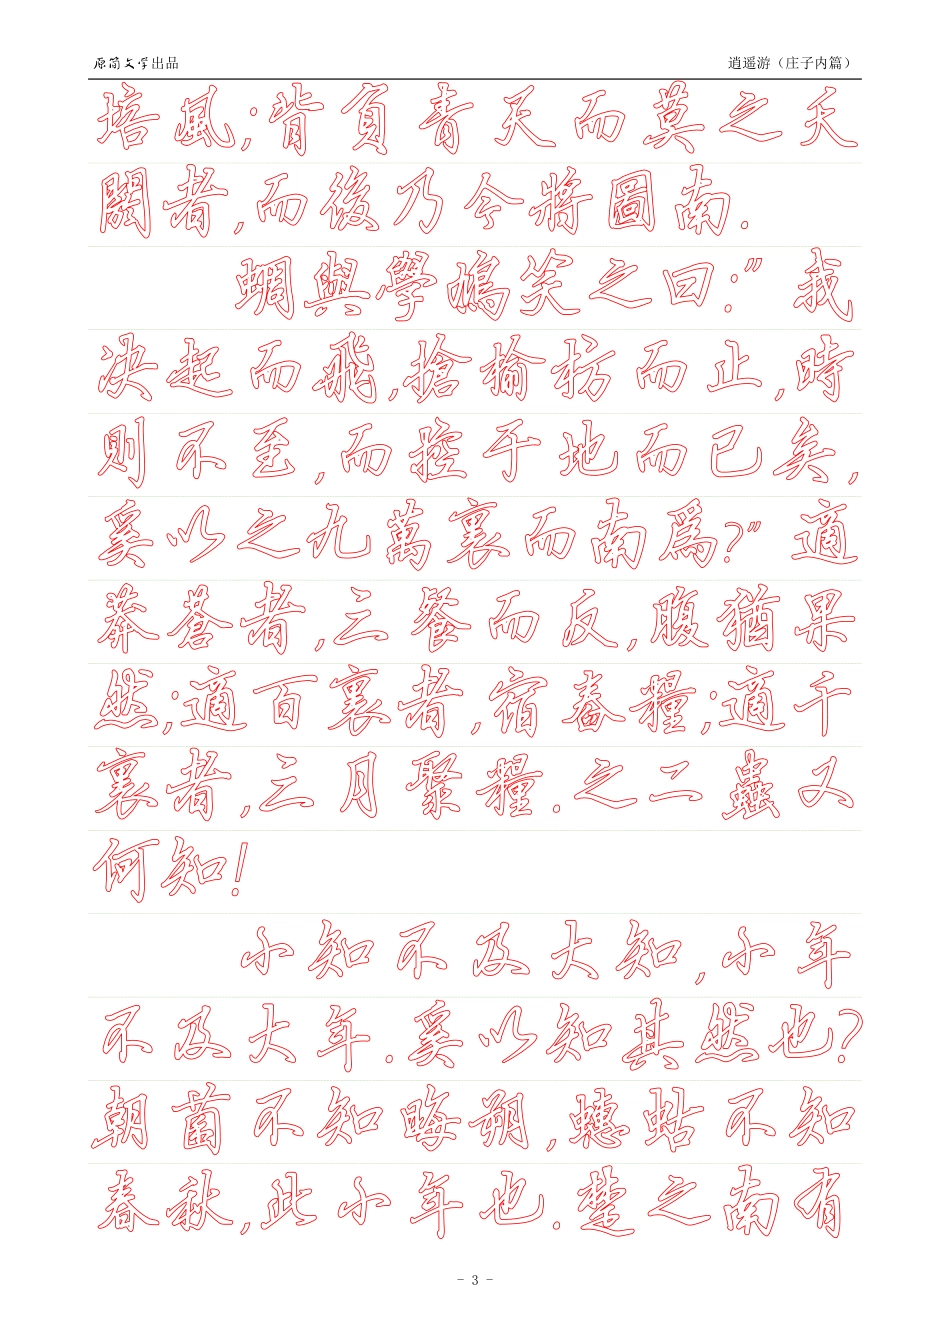 原简文学出品 逍遥游（庄子内篇）
培風;背負青天而莫之夭
閼者,而後乃今將圖南.
蜩與學鳩笑之曰:"我
决起而飛,搶榆枋而止,時
則不至,而控于地而已矣,
奚以之九萬裏而南爲?"適
莽蒼者,三餐而反,腹猶果
然;適百裏者,宿舂糧;適千
裏者,三月聚糧.之二蟲又
何知!
小知不及大知,小年
不及大年.奚以知其然也?
朝菌不知晦朔,蟪蛄不知
春秋,此小年也.楚之南有
- 3 -